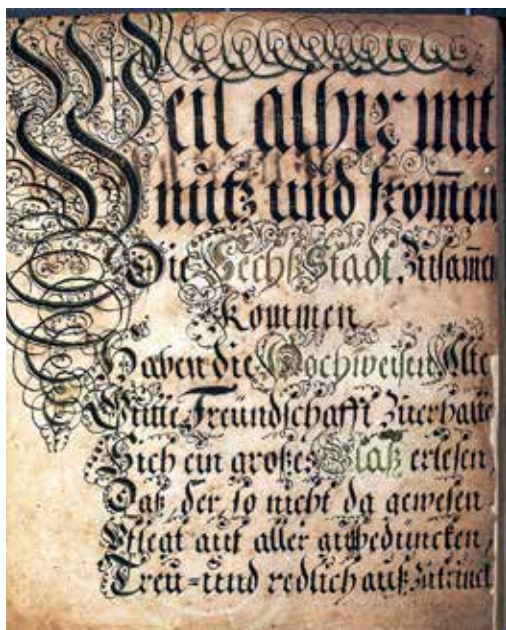 Weil alhir mit
nutz und from̅en
Die SechßStadt Zusam̅en
Kommen
Haben die Hochweisen Alte
Gutte Freündschafft Zuerhalte
Sich ein großes Glaß erlesen,
Daß, der, so nicht da gewesen
Pflegt auf aller gutbeduncken,
Treu=und redlich auß Zutrinck